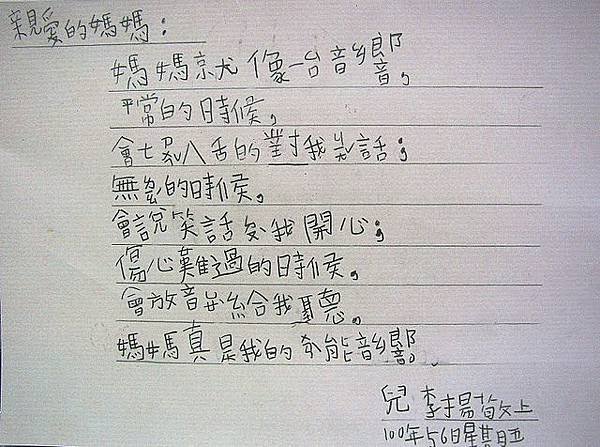 親愛的媽媽：
媽媽就像一台音響，
平常的時候，
會七 八舌的對我 話；
無 的時候。
會說笑話 我開心；
傷心難過的時候。
會放音 給我聽。
媽媽真是我的 能音響。
兒 李揚敬上
100年5 6日星期